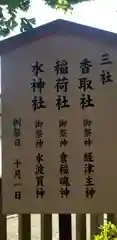 三社
香取社
御祭神 経津主神
稲荷社
御祭神 倉稲魂神
水神社
御祭神 水波賣神
例祭日 十月一日